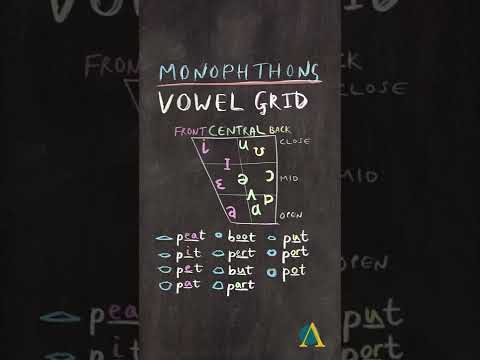 MONOPHTHONG
VOWEL GRID
FRONT CENTRAL BACK
CLOSE
I
MID
OPEN
peat boot put
pit pert port
pet but pot
pat part